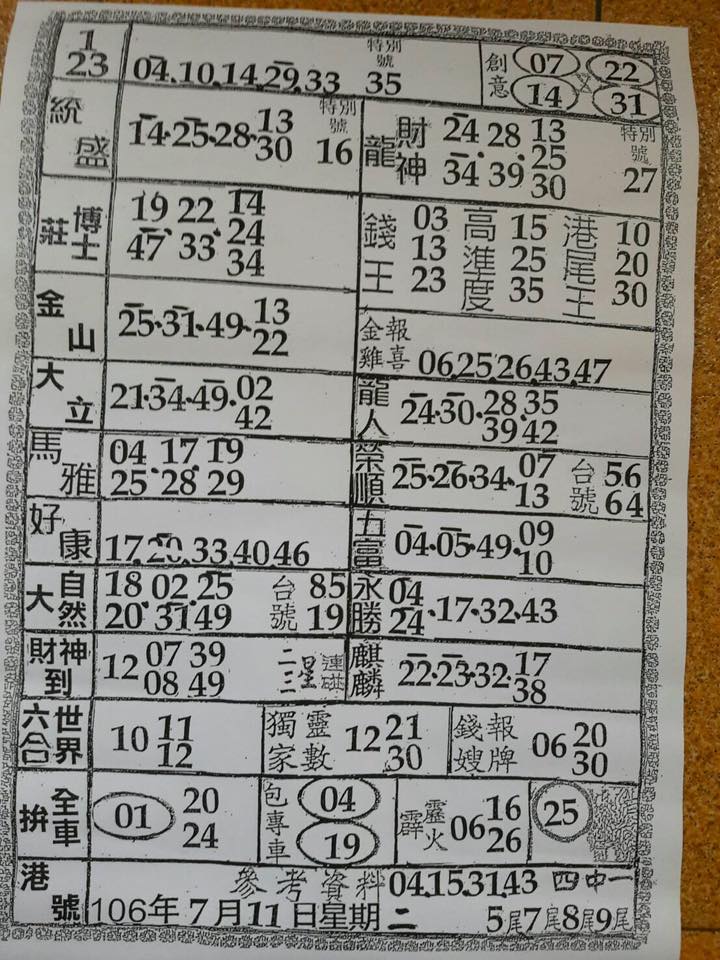 1 23 04.10.14.29.33 特別號 35
創意 07 22 14 31
統盛 14.25.28.13 30 特別號 16
龍財神 24 28 13 25 34 39 30 特別號 27
莊博士 19 22 14 24 47 33 34
錢王 03 13 23 高進度 15 25 35 港尾王 10 20 30
金山 25.31.49.13 22
金雞報喜 06.25.26.43.47
大立 21.34.49.02 42
龍人 24.30.28 35 39 42
馬雅 04 17 19 25 28 29
榮順 25.26.34.07 13 台號 56 64
好康 17.20.33.40.46
五富 04.05.49.09 10
大自然 18 02 25 20 31 49 台號 85 19
永勝 04 24.17.32.43
財神到 12 07 39 08 49 二三星連碰
麒麟 22.23.32.17 38
六合世界 10 11 12
獨家靈數 12 21 30
錢嫂報牌 06 20 30
拚全車 01 20 24
包專車 04 19
霹靂火 06 16 26
25
港號 參考資料 04.15.31.43 四中一
106年7月11日星期二 5尾7尾8尾9尾